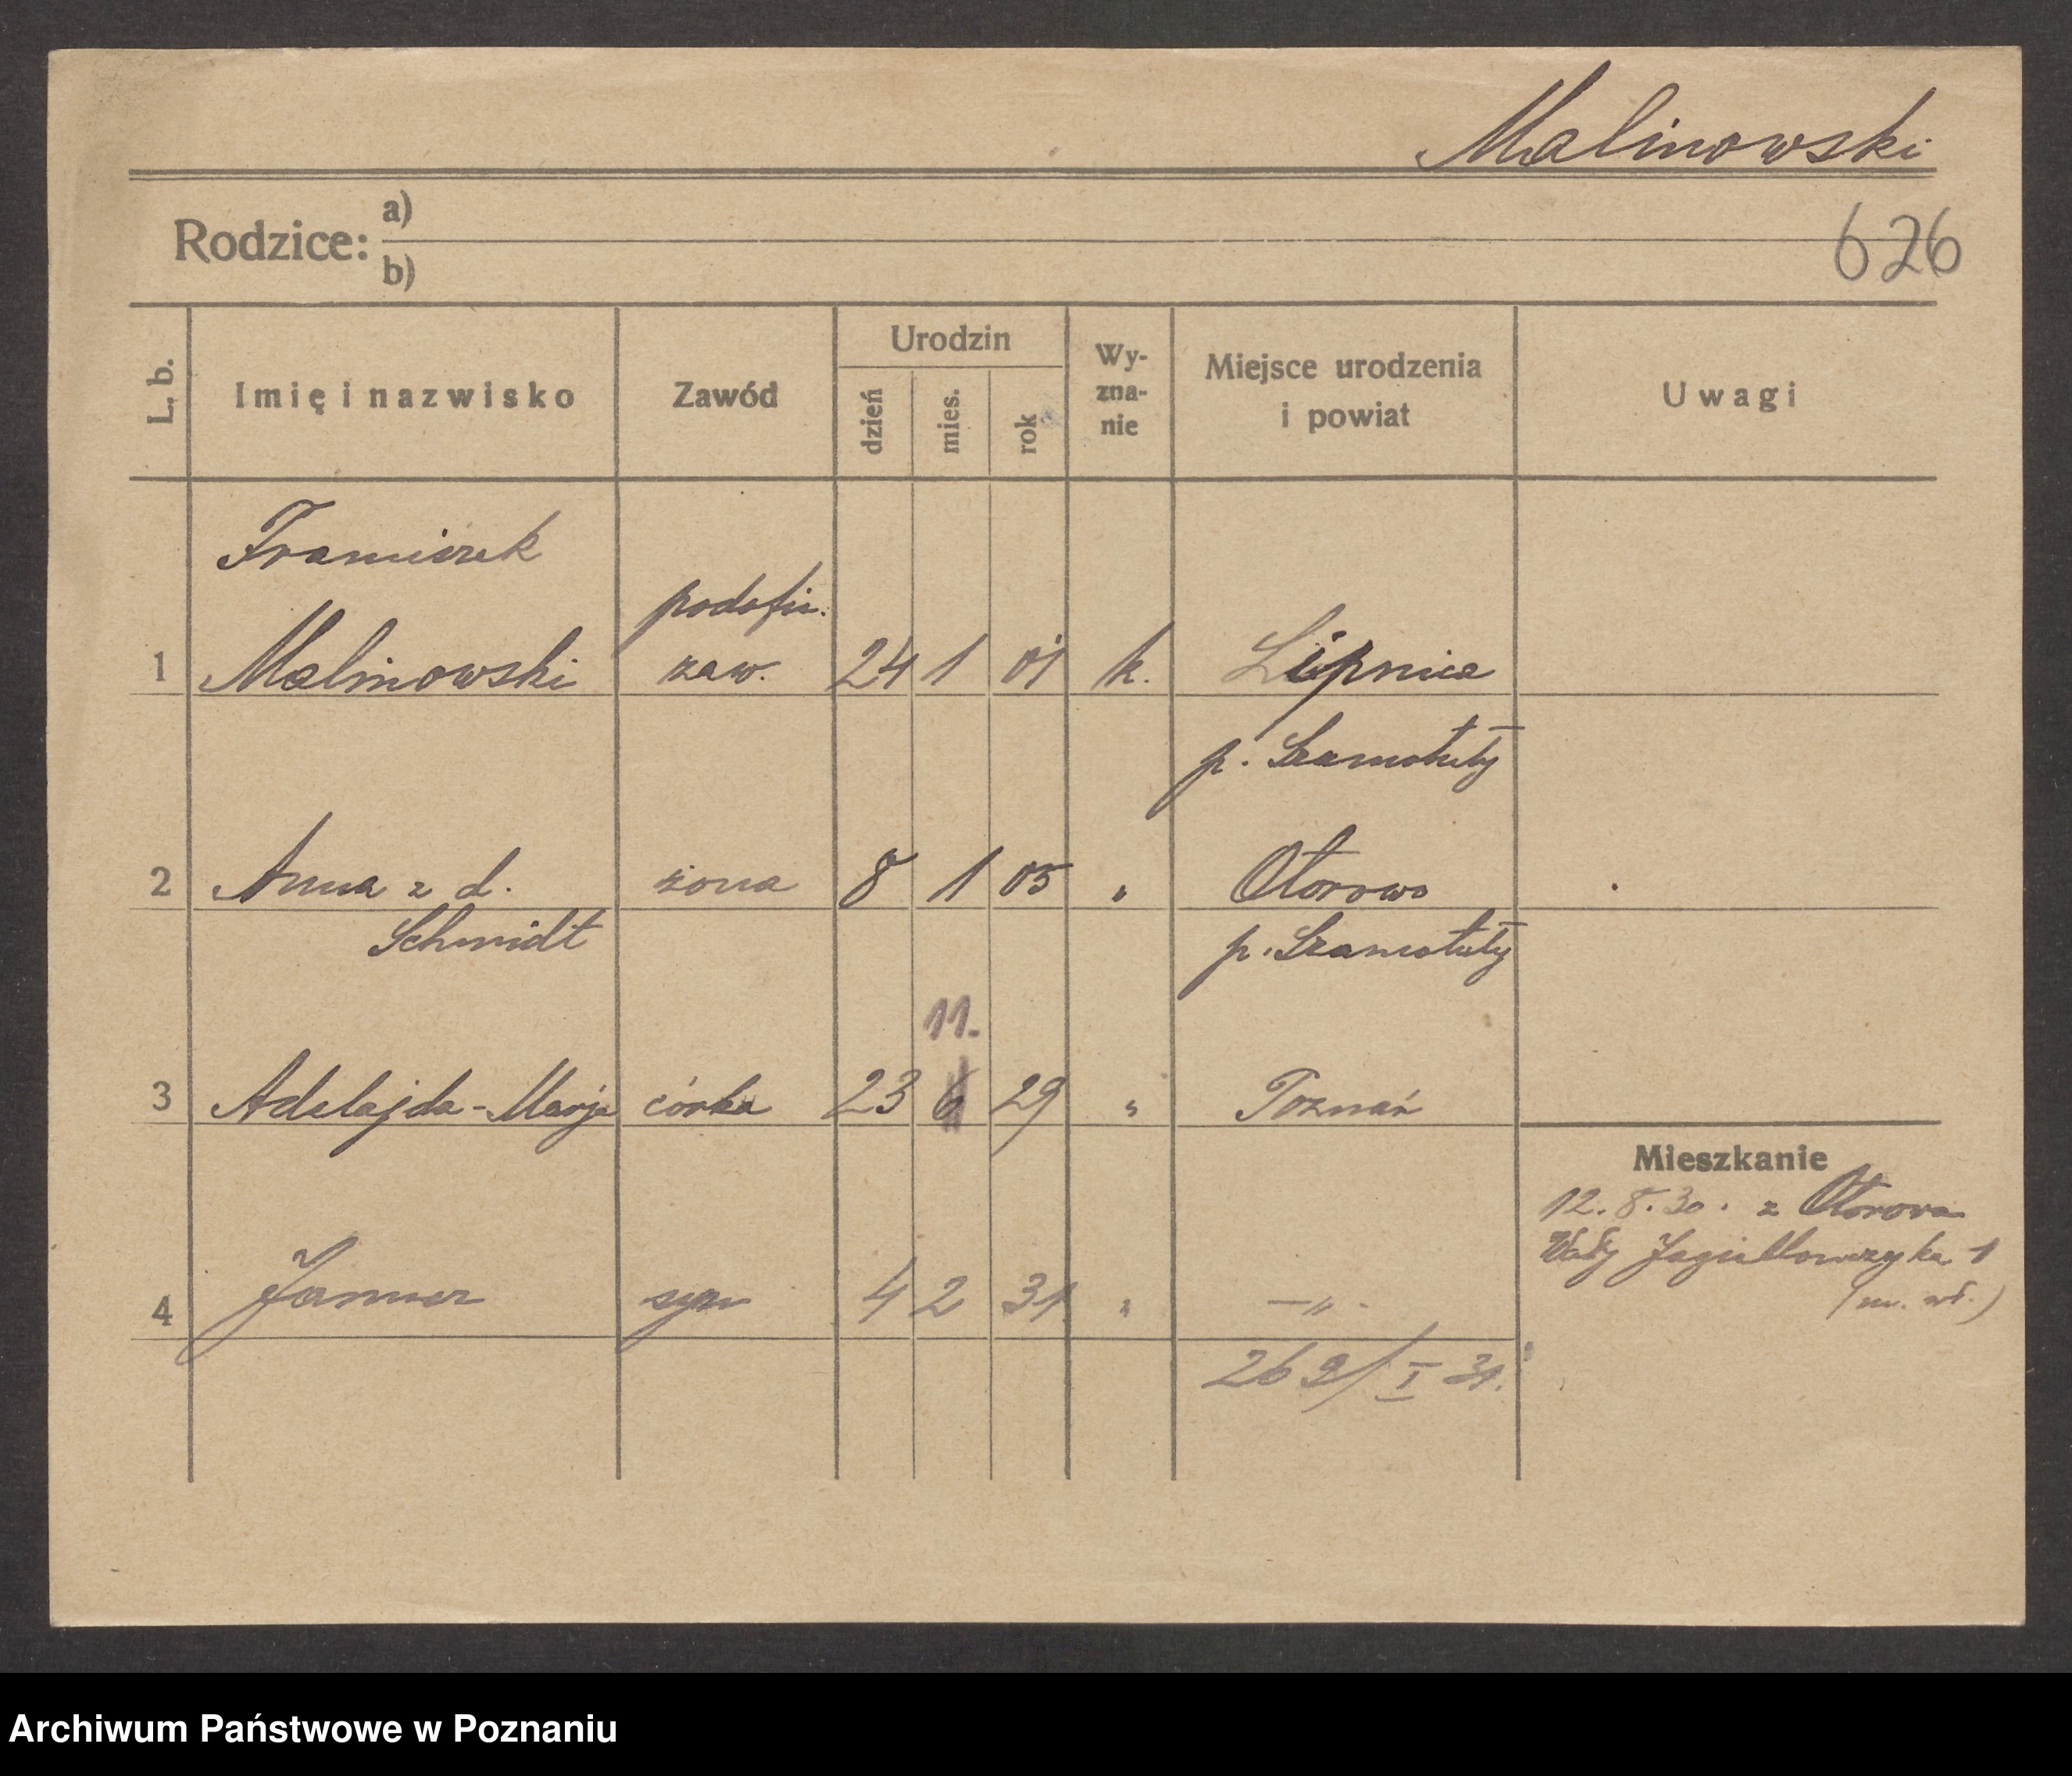 Malinowski
Rodzice: a)
b)
626
L. b.
Imię i nazwisko
Zawód
Urodzin
dzień
mies.
rok
Wy-
zna-
nie
Miejsce urodzenia
i powiat
Uwagi
Franciszek
podofic.
1 Malinowski zaw. 24 1 01 k. Lipnica
p. Szamotuły
2 Anna z d. żona 8 1 05 " Otorowo
Schmidt p. Szamotuły
11.
3 Adelajda-Marja córka 23 6 29 " Poznań
Mieszkanie
12.8.30. z Otorowa
Wały Jagiellończyka 1
(m. wł.)
4 syn 4 2 31. " —"-
269/I 31.
Archiwum Państwowe w Poznaniu